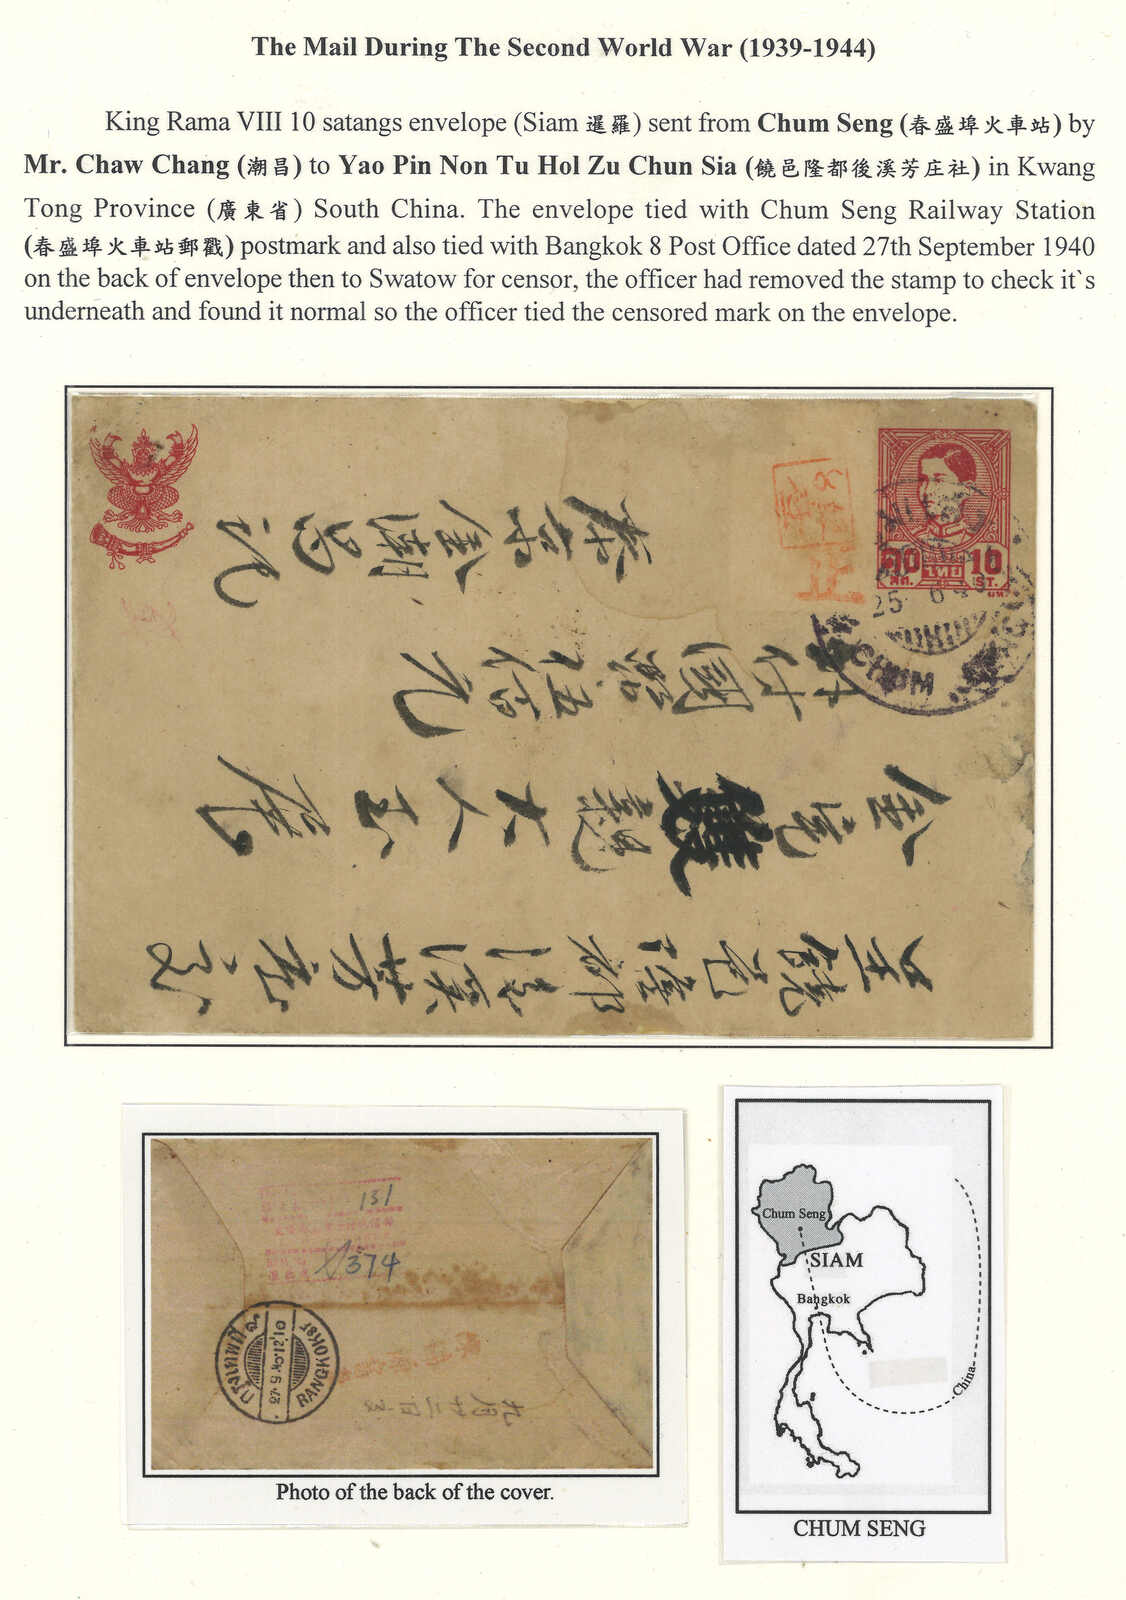 The Mail During The Second World War (1939-1944)
King Rama VIII 10 satangs envelope (Siam 暹羅) sent from Chum Seng (春盛埠火車站) by
Mr. Chaw Chang (潮昌) to Yao Pin Non Tu Hol Zu Chun Sia (饒邑隆都後溪芳庄社) in Kwang
Tong Province (廣東省) South China. The envelope tied with Chum Seng Railway Station
(春盛埠火車站郵戳) postmark and also tied with Bangkok 8 Post Office dated 27th September 1940
on the back of envelope then to Swatow for censor, the officer had removed the stamp to check it`s
underneath and found it normal so the officer tied the censored mark on the envelope.
๑๐ ไทย 10
สต. ST.
25 6
CHUM
饒邑隆都後溪芳
大人
國幣伍佰元
131
374
BANGKOK 8
กรุงเทพฯ ๘
九月廿三日
Photo of the back of the cover.
Chum Seng
SIAM
Bangkok
China
CHUM SENG